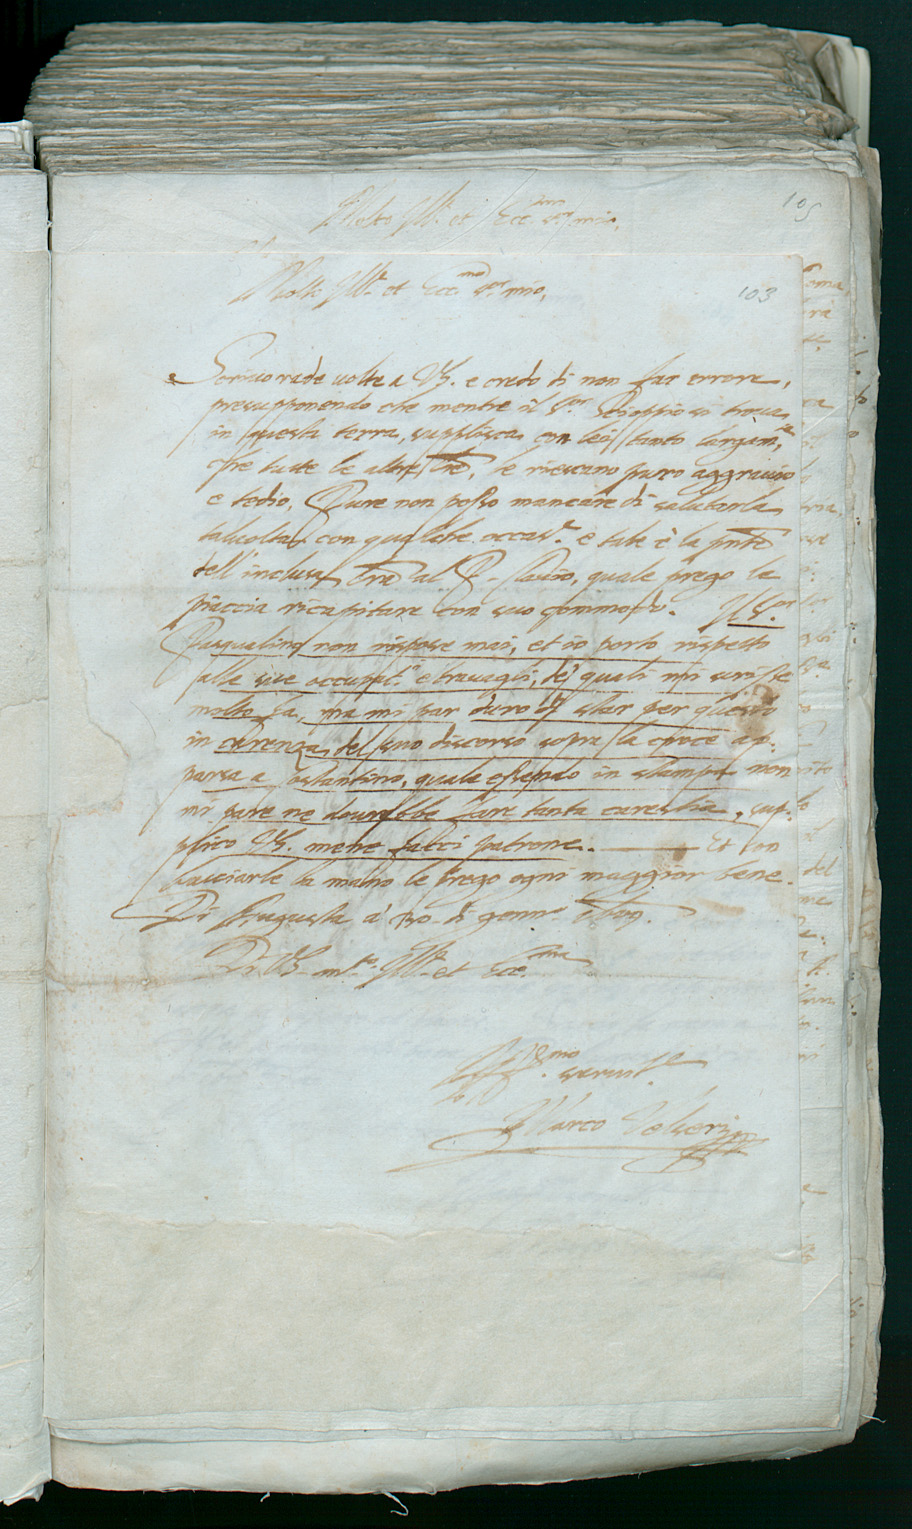 105
Molto Ill.re et Ecc.mo S.or mio,
Molto Ill.re et Ecc.mo S.or mio,
103
Scrivo rade volte a VS. e credo di non far errore,
presupponendo che mentre il S.or Scioppio si trova
in questa terra, supplisca con lei tanto largam.te
che tutte le altre lre, le riescano puro aggravio
e tedio, Pure non posso mancare di salutarla
talvolta con qualche occas.e e tale è la pnte
dell'inclusa lra al P. quale prego le
piaccia ricapitare con suo commodo. Il S.or
Pasqualino non rispose mai, et io porto rispetto
alle sue occupat.i e travagli, de' quali mi scrisse
molto fa, ma mi par duro di star per questo
in carenza del suo discorso sopra la croce ap-
parsa a Costantino, quale essendo in stampa non
mi pare ne dovrebbe fare tanta carestia, sup-
plico VS. mene facci patrone. Et con
bacciarle la mano le prego ogni maggior bene.
Di Augusta a' 30 di genn.o
Di VS. m.to Ill.re et Ecc.ma
Aff.mo servit.e
Marco Velseri